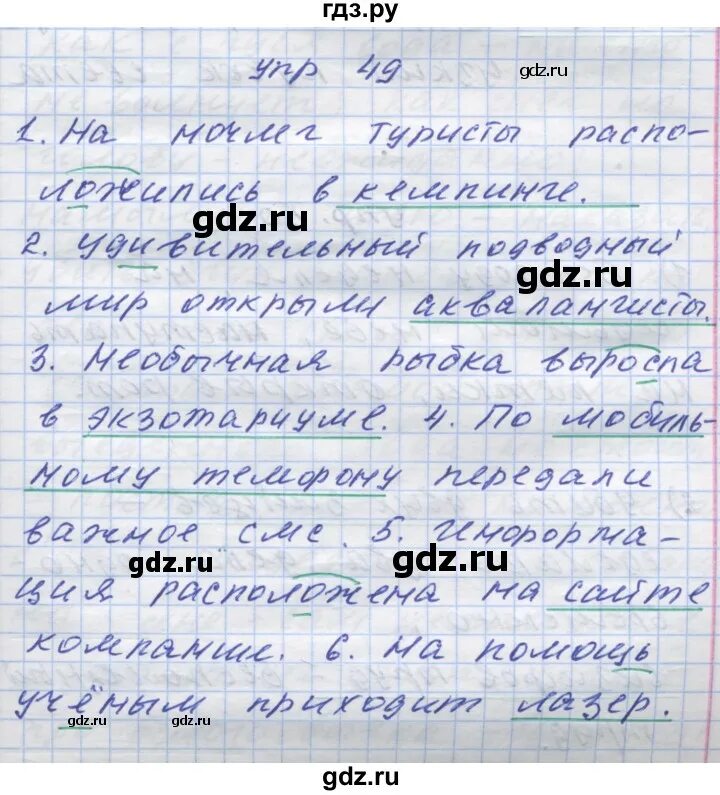 гдз.ру
упр 49
gdz.ru
1. На ночлег туристы распо-
ложились в кемпинге.
gdz.ru
2. Удивительный подводный
gdz.ru
мир открыли аквалангисты.
3. Необычная рыбка выросла
в экзотариуме. 4. По мобиль-
ному телефону передали
важное смс. 5. Информа-
gdz.ru gdz.ru
ция расположена на сайте
компании. 6. На помощь
учёным приходит лазер.
gdz.ru gdz.ru
gdz.ru